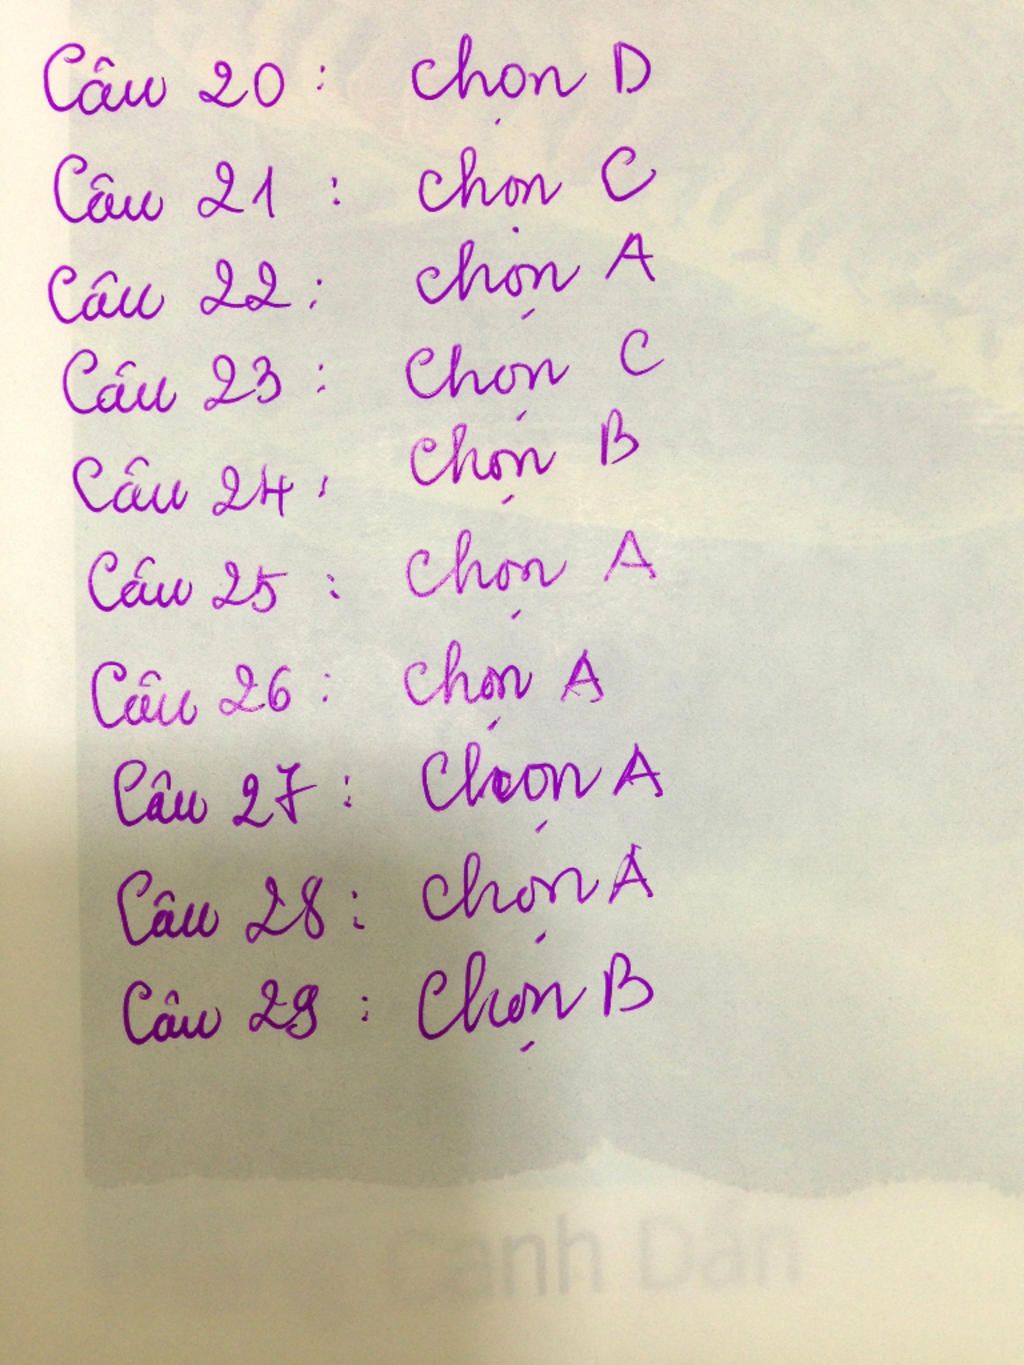 Câu 20 : chọn D
Câu 21 : chọn C
Câu 22 : chọn A
Câu 23 : chọn C
Câu 24 : chọn B
Câu 25 : chọn A
Câu 26 : chọn A
Câu 27 : Chọn A
Câu 28 : chọn A
Câu 29 : Chọn B
Canh Dần